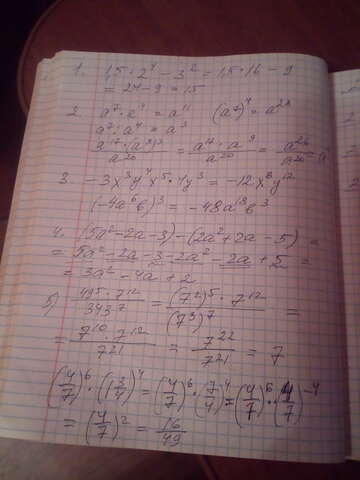 1. 1,5 · 2⁴ − 3² = 1,5 · 16 − 9
= 24 − 9 = 15
2. a⁷ · a⁴ = a¹¹ (a⁷)⁴ = a²⁸
a⁷ : a⁴ = a³
a¹⁷ · (a³)³ / a²⁰ = a¹⁷ · a⁹ / a²⁰ = a²⁶ / a²⁰ =
3. −3x³y⁴x⁵ · 4y³ = −12x⁸y¹²
(−4a⁶b)³ = −48a¹⁸b³
4. (5a² − 2a − 3) − (2a² + 2a − 5) =
= 5a² − 2a − 3 − 2a² − 2a + 5 =
= 3a² − 4a + 2
5) 49⁵ · 7¹² / 343⁷ = (7²)⁵ · 7¹² / (7³)⁷ =
= 7¹⁰ · 7¹² / 7²¹ = 7²² / 7²¹ = 7
(4/7)⁶ · (1 3/4)⁴ = (4/7)⁶ · (7/4)⁴ = (4/7)⁶ · (4/7)⁻⁴
= (4/7)² = 16/49